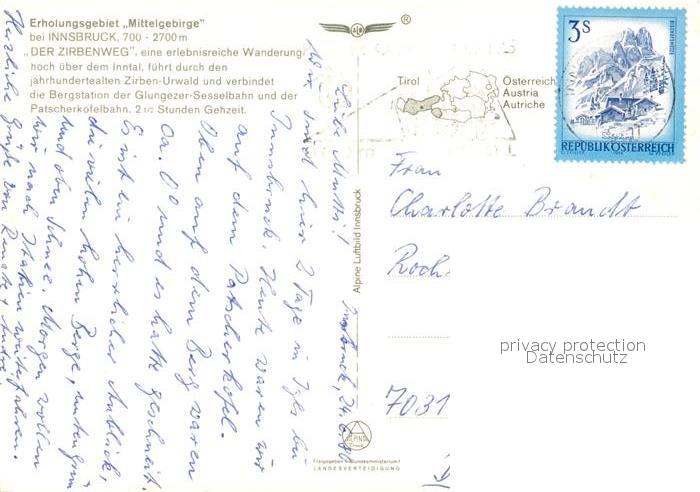 Erholungsgebiet „Mittelgebirge"
bei INNSBRUCK, 700 - 2700 m
„DER ZIRBENWEG", eine erlebnisreiche Wanderung
hoch über dem Inntal, führt durch den
jahrhundertealten Zirben-Urwald und verbindet
die Bergstation der Glungezer-Sesselbahn und der
Patscherkofelbahn. 2 1/2 Stunden Gehzeit.
Innsbruck, 24.6.80
Liebe Mutti!
Wir sind hier 2 Tage in Igls bei
Innsbruck. Heute waren wir
auf dem Patscherkofel.
Oben auf dem Berg waren
ca. 0° und es hatte geschneit.
Es ist ein herrlicher Anblick,
die vielen hohen Berge, unten grün
und oben Schnee. Morgen wollen
wir nach Italien weiterfahren.
Herzliche Grüße von Renate + André
Alpine Luftbild Innsbruck
Tirol
Österreich
Austria
Autriche
3 S
REPUBLIK ÖSTERREICH
Frau
Charlotte Brandt
Roch
7031
privacy protection
Datenschutz
ALPINE
Freigegeben v. Bundesministerium f.
LANDESVERTEIDIGUNG